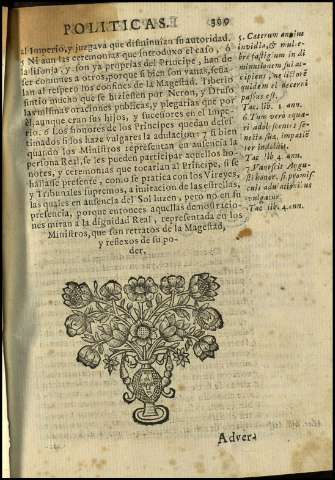 POLITICAS. 309
al Imperio, y juzgava que disminuìan su autoridad.
5 Ni aun las ceremonias que introduxo el caso, ó
la lisonja, y son ya propias del Principe, han de
ser comunes a otros, porque si bien son vanas, seña-
lan al respeto los confines de la Magestad. Tiberio
sintiò mucho que se hiziessen por Neron, y Druso
las mismas oraciones publicas, y plegarias que por
èl, aunque eran sus hijos, y sucessores en el Impe-
rio. 6 Los honores de los Principes quedan desesti-
mados si los haze vulgares la adulacion: 7 si bien
quando los Ministros representan en ausencia la
persona Real, se les pueden participar aquellos ho-
nores, y ceremonias que tocarian al Principe, si se
hallasse presente, como se pratica con los Virreyes,
y Tribunales supremos, a imitacion de las estrellas,
las quales en ausencia del Sol luzen; pero no en su
presencia, porque entonces aquellas demostracio-
nes miran a la dignidad Real, representada en los
Ministros, que son retratos de la Magestad,
y reflexos de su po-
der.
5. Ceterum
invidia, & mulie-
bre fastigium in di-
minutionem sui ac-
cipiens, ne lictorē
quidem ei decerni
passus est,
Tac. lib. 1. ann.
6. Tum vero equa-
ri adolescentes se-
nectæ suæ, impatiē-
ter indoluit,
Tac lib 4. ann.
7. Vanescit Augu-
sti honor, si promis-
cuis adulationibus
vulgatur.
Tac lib. 4. ann.
Adver-